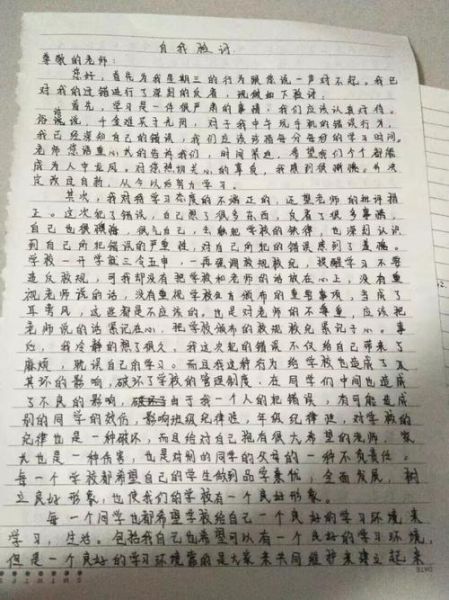 自我检讨
尊敬的老师:
您好,首先为我星期三的行为跟您说一声对不起。我已
对我的过错进行了深刻的反省,现做如下检讨:
首先,学习是一件很严肃的事情,我们应该认真对待。
俗话说,千金难买寸光阴,对于我中午玩手机的错误行为,
我已经深知自己的错误,我们应该珍惜每分每秒的学习时间。
老师您语重心长的告诫我们,时间紧迫,希望我们个个都能
成为人中龙凤,对您热切关心的辜负,我感到很惭愧,并决
定改过自新,从今以后努力学习。
其次,我对待学习态度的不端正的,还望老师的批评指
正。这次犯了错误,自己想了很多东西,反省了很多事情,
自己也很懊悔,很气自己,去触犯学校的铁律,也深刻认识
到自己所犯错误的严重性,对自己所犯的错误感到了羞愧。
学校一开学就三令五申,一再强调校规校纪,提醒学习不要
违反校规,可我却没有把学校和老师的话放在心上,没有重
视老师说的话,没有重视学校颁布的重要事项,当成了
耳旁风,这些都是不应该的。也是对老师的不尊重,应该把
老师说的话紧记在心,把学校颁布的校规校纪紧记于心。事
后,我冷静的想了很久,我这次犯的错误不仅给自己带来了
麻烦,耽误自己的学习。而且我这种行为给学校也造成了及
其坏的影响,破坏了学校的管理制度。在同学们中间也造成
了不良的影响,由于我一个人的犯错误,有可能造成
别的同学的效仿,影响班级纪律性,年级纪律性,对学校的
纪律也是一种破坏,而且给对自己抱有很大希望的老师,家
长也是一种伤害,也是对别的同学的父母的一种不负责任。
每一个学校都希望自己的学生做到品学兼优,全面发展,树
立良好形象,也使我们的学校有一个良好形象。
每一个同学也都希望学校给自己一个良好的学习环境来
学习,生活。包括我自己也希望可以有一个良好的学习环境,
但是一个良好的学习环境靠的是大家来共同维护来建立起来
DATE